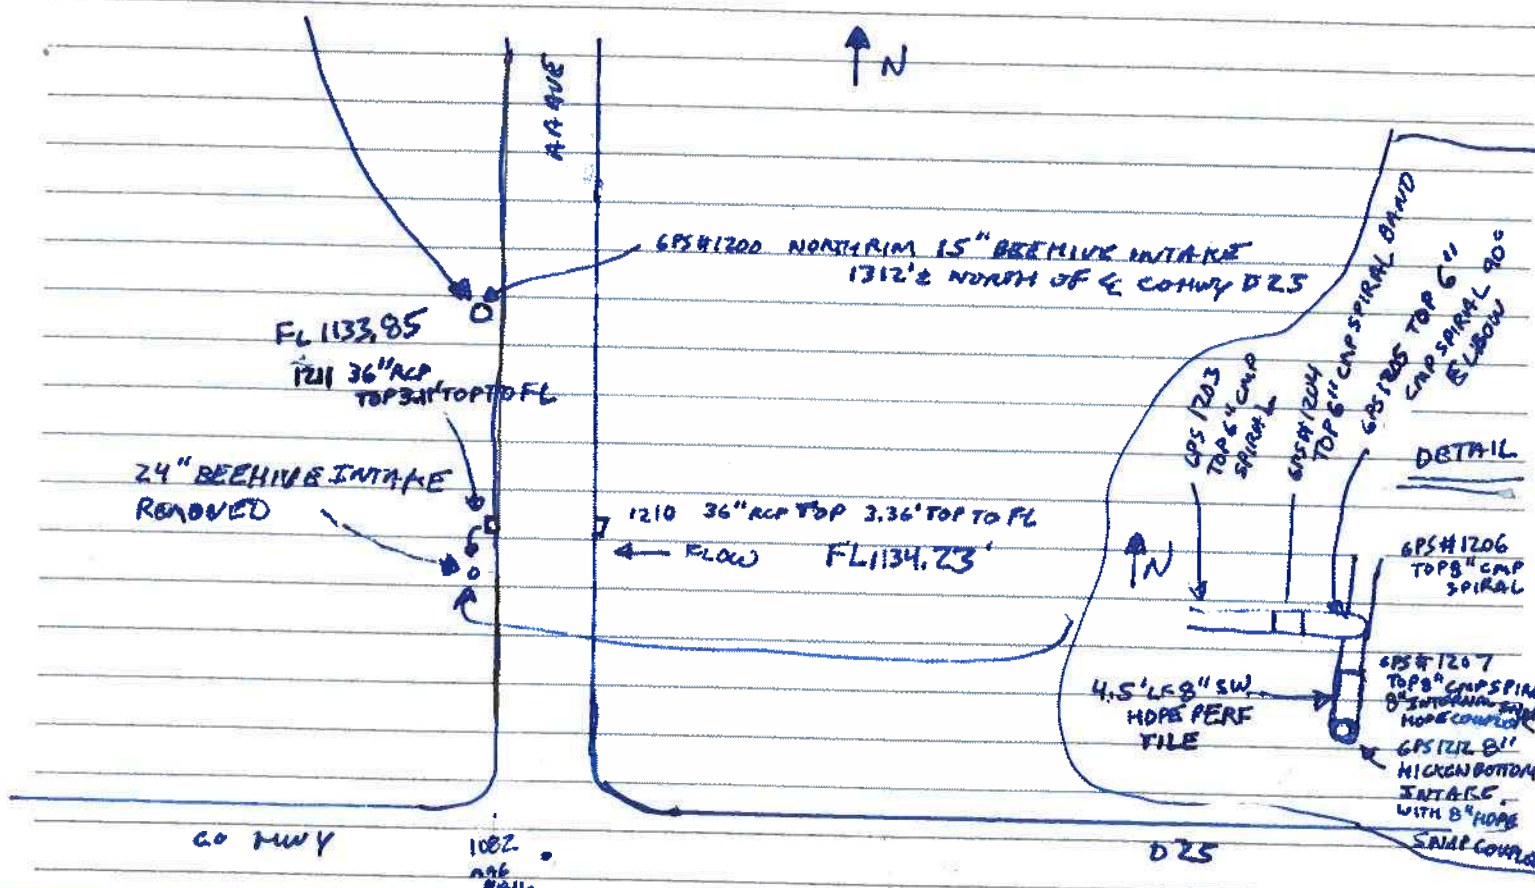 N
AA AVE
GPS#1200 NORTH RIM 15" BEEHIVE INTAKE
1312'± NORTH OF ℄ CO HWY D25
FL 1133.85
1211 36" RCP
TOP 3.11' TOP TO FL
24" BEEHIVE INTAKE
REMOVED
1210 36" RCP TOP 3.36' TOP TO FL
← FLOW FL 1134.23'
GPS 1203
TOP 6" CMP
SPIRAL
GPS#1204
TOP 6" CMP SPIRAL BAND
GPS 1205 TOP 6"
CMP SPIRAL 90°
ELBOW
DETAIL
N
GPS#1206
TOP 8" CMP
SPIRAL
4.5' LF 8" SW
HDPE PERF
TILE
GPS#1207
TOP 8" CMP SPIRA
8" INTERNAL SNAP
HDPE COUPLER
GPS 1212 8"
HICKENBOTTOM
INTAKE
WITH 8" HDPE
SNAP COUPLE
CO HWY
D25
1082